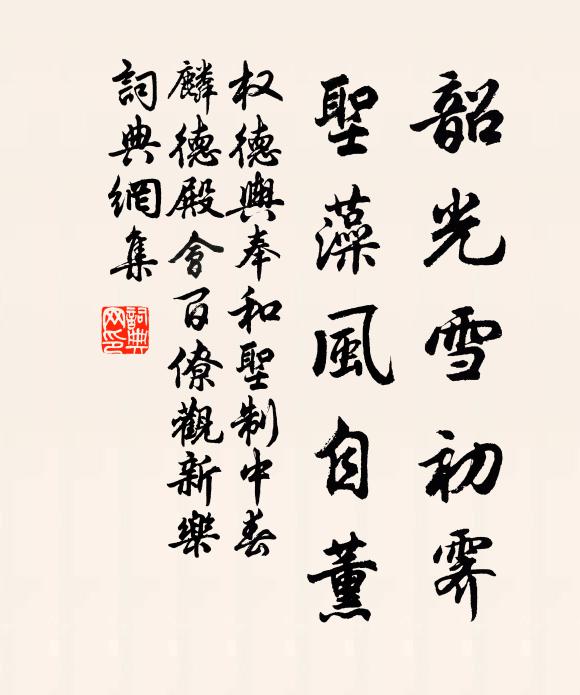 韶光雪初霽
聖藻風自薰
权德輿奉和聖制中春
麟德殿會百僚觀新樂
詞典網集
詞典
网印